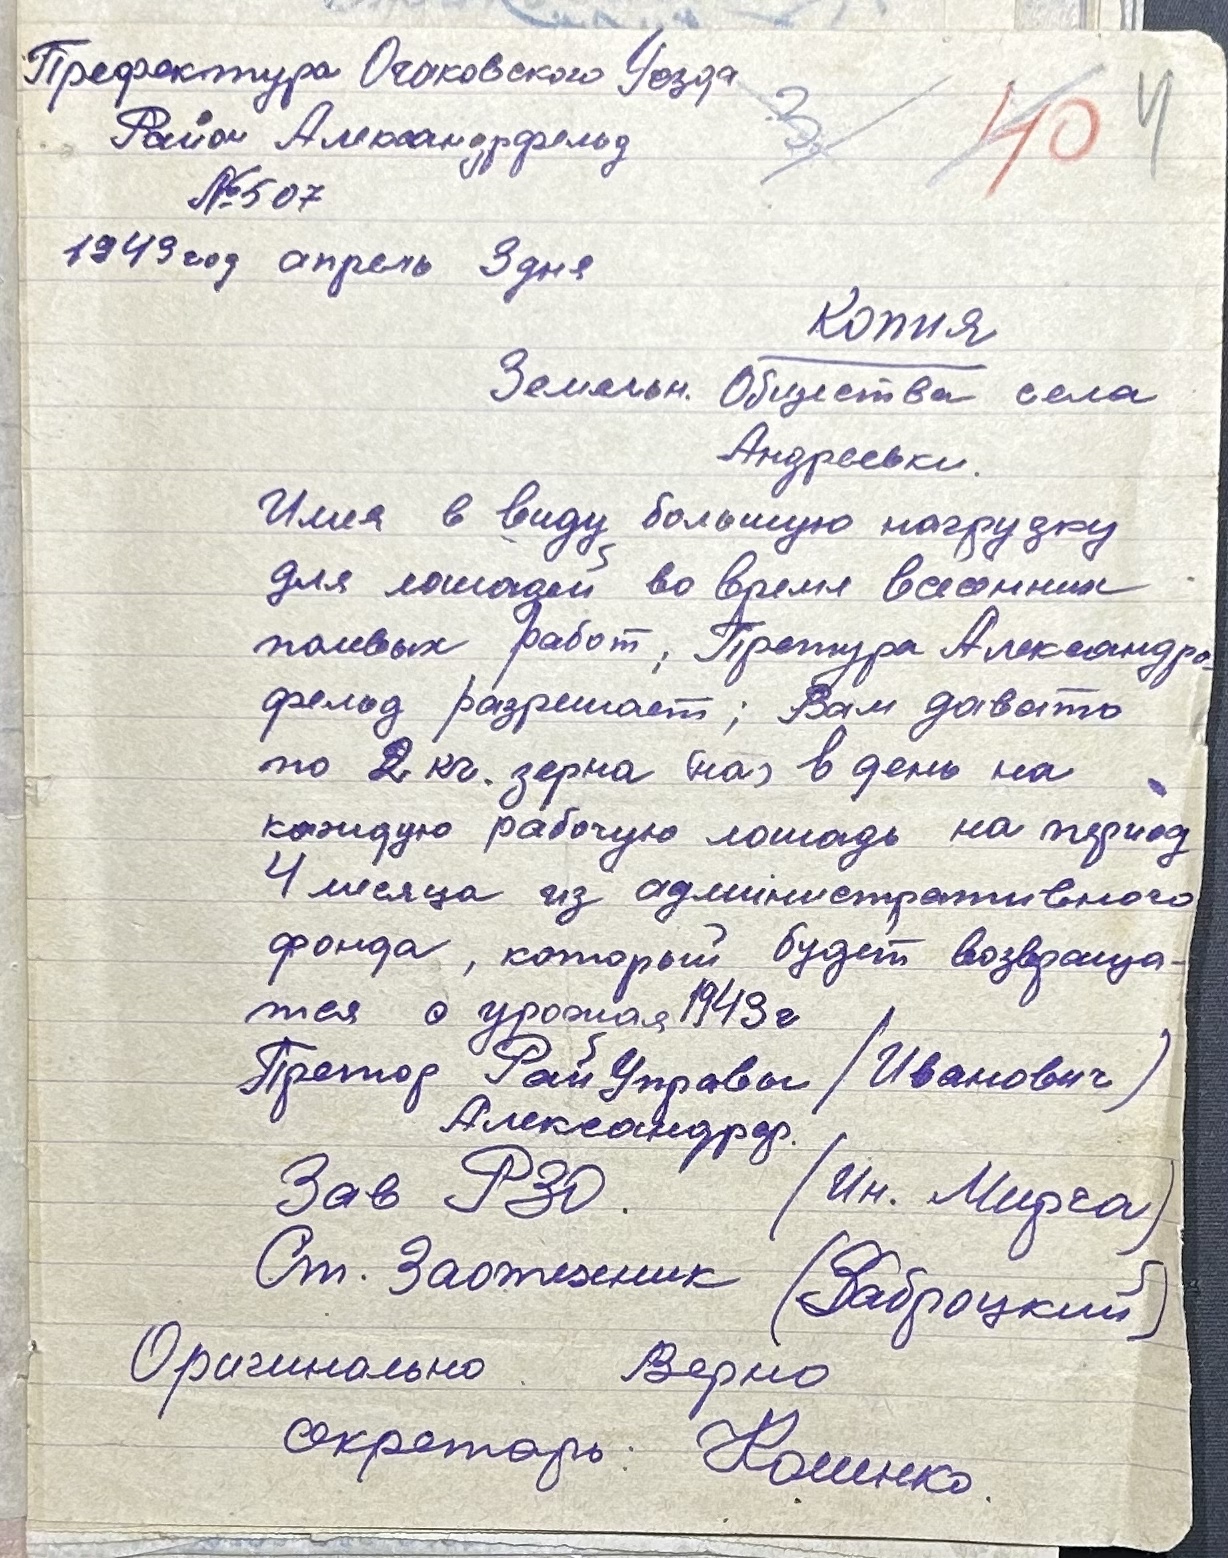 Префектура Очаковского Уезда
Район Александрфельд
№507
1943 год апрель 3 дня
3 40 4
Копия
Земельн. Общества села
Андреевки.
Имея в виду большую нагрузку
для лошадей во время весенних
полевых работ, Претура Александро-
фельд разрешает; Вам давать
по 2 кг. зерна (на) в день на
каждую рабочую лошадь на период
4 месяца из административного
фонда, который будет возвраща-
тся с урожая 1943 г
Претор Рай Управы (Иванович)
Александрф.
Зав РЗО. (Ин. Мирча)
Ст. Заотехник (Заброцкий)
Оригинально Верно
секретарь: